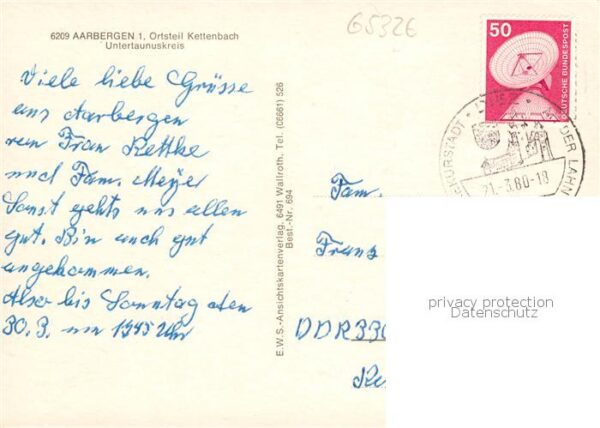 6209 AARBERGEN 1, Ortsteil Kettenbach
Untertaunuskreis
Viele liebe Grüsse
aus Aarbergen
von Frau Rettke
und Fam. Meyer
Sonst gehts uns allen
gut. Bin auch gut
angekommen.
Also bis Sonntag den
30.3. um 1345 Uhr
E.W.S.-Ansichtskartenverlag, 6491 Wallroth, Tel. (06661) 526
Best.-Nr. 694
G5326
50
DEUTSCHE BUNDESPOST
DER LAHN
21.-3.80-18
Fam.
Franz
DDR 330
privacy protection
Datenschutz